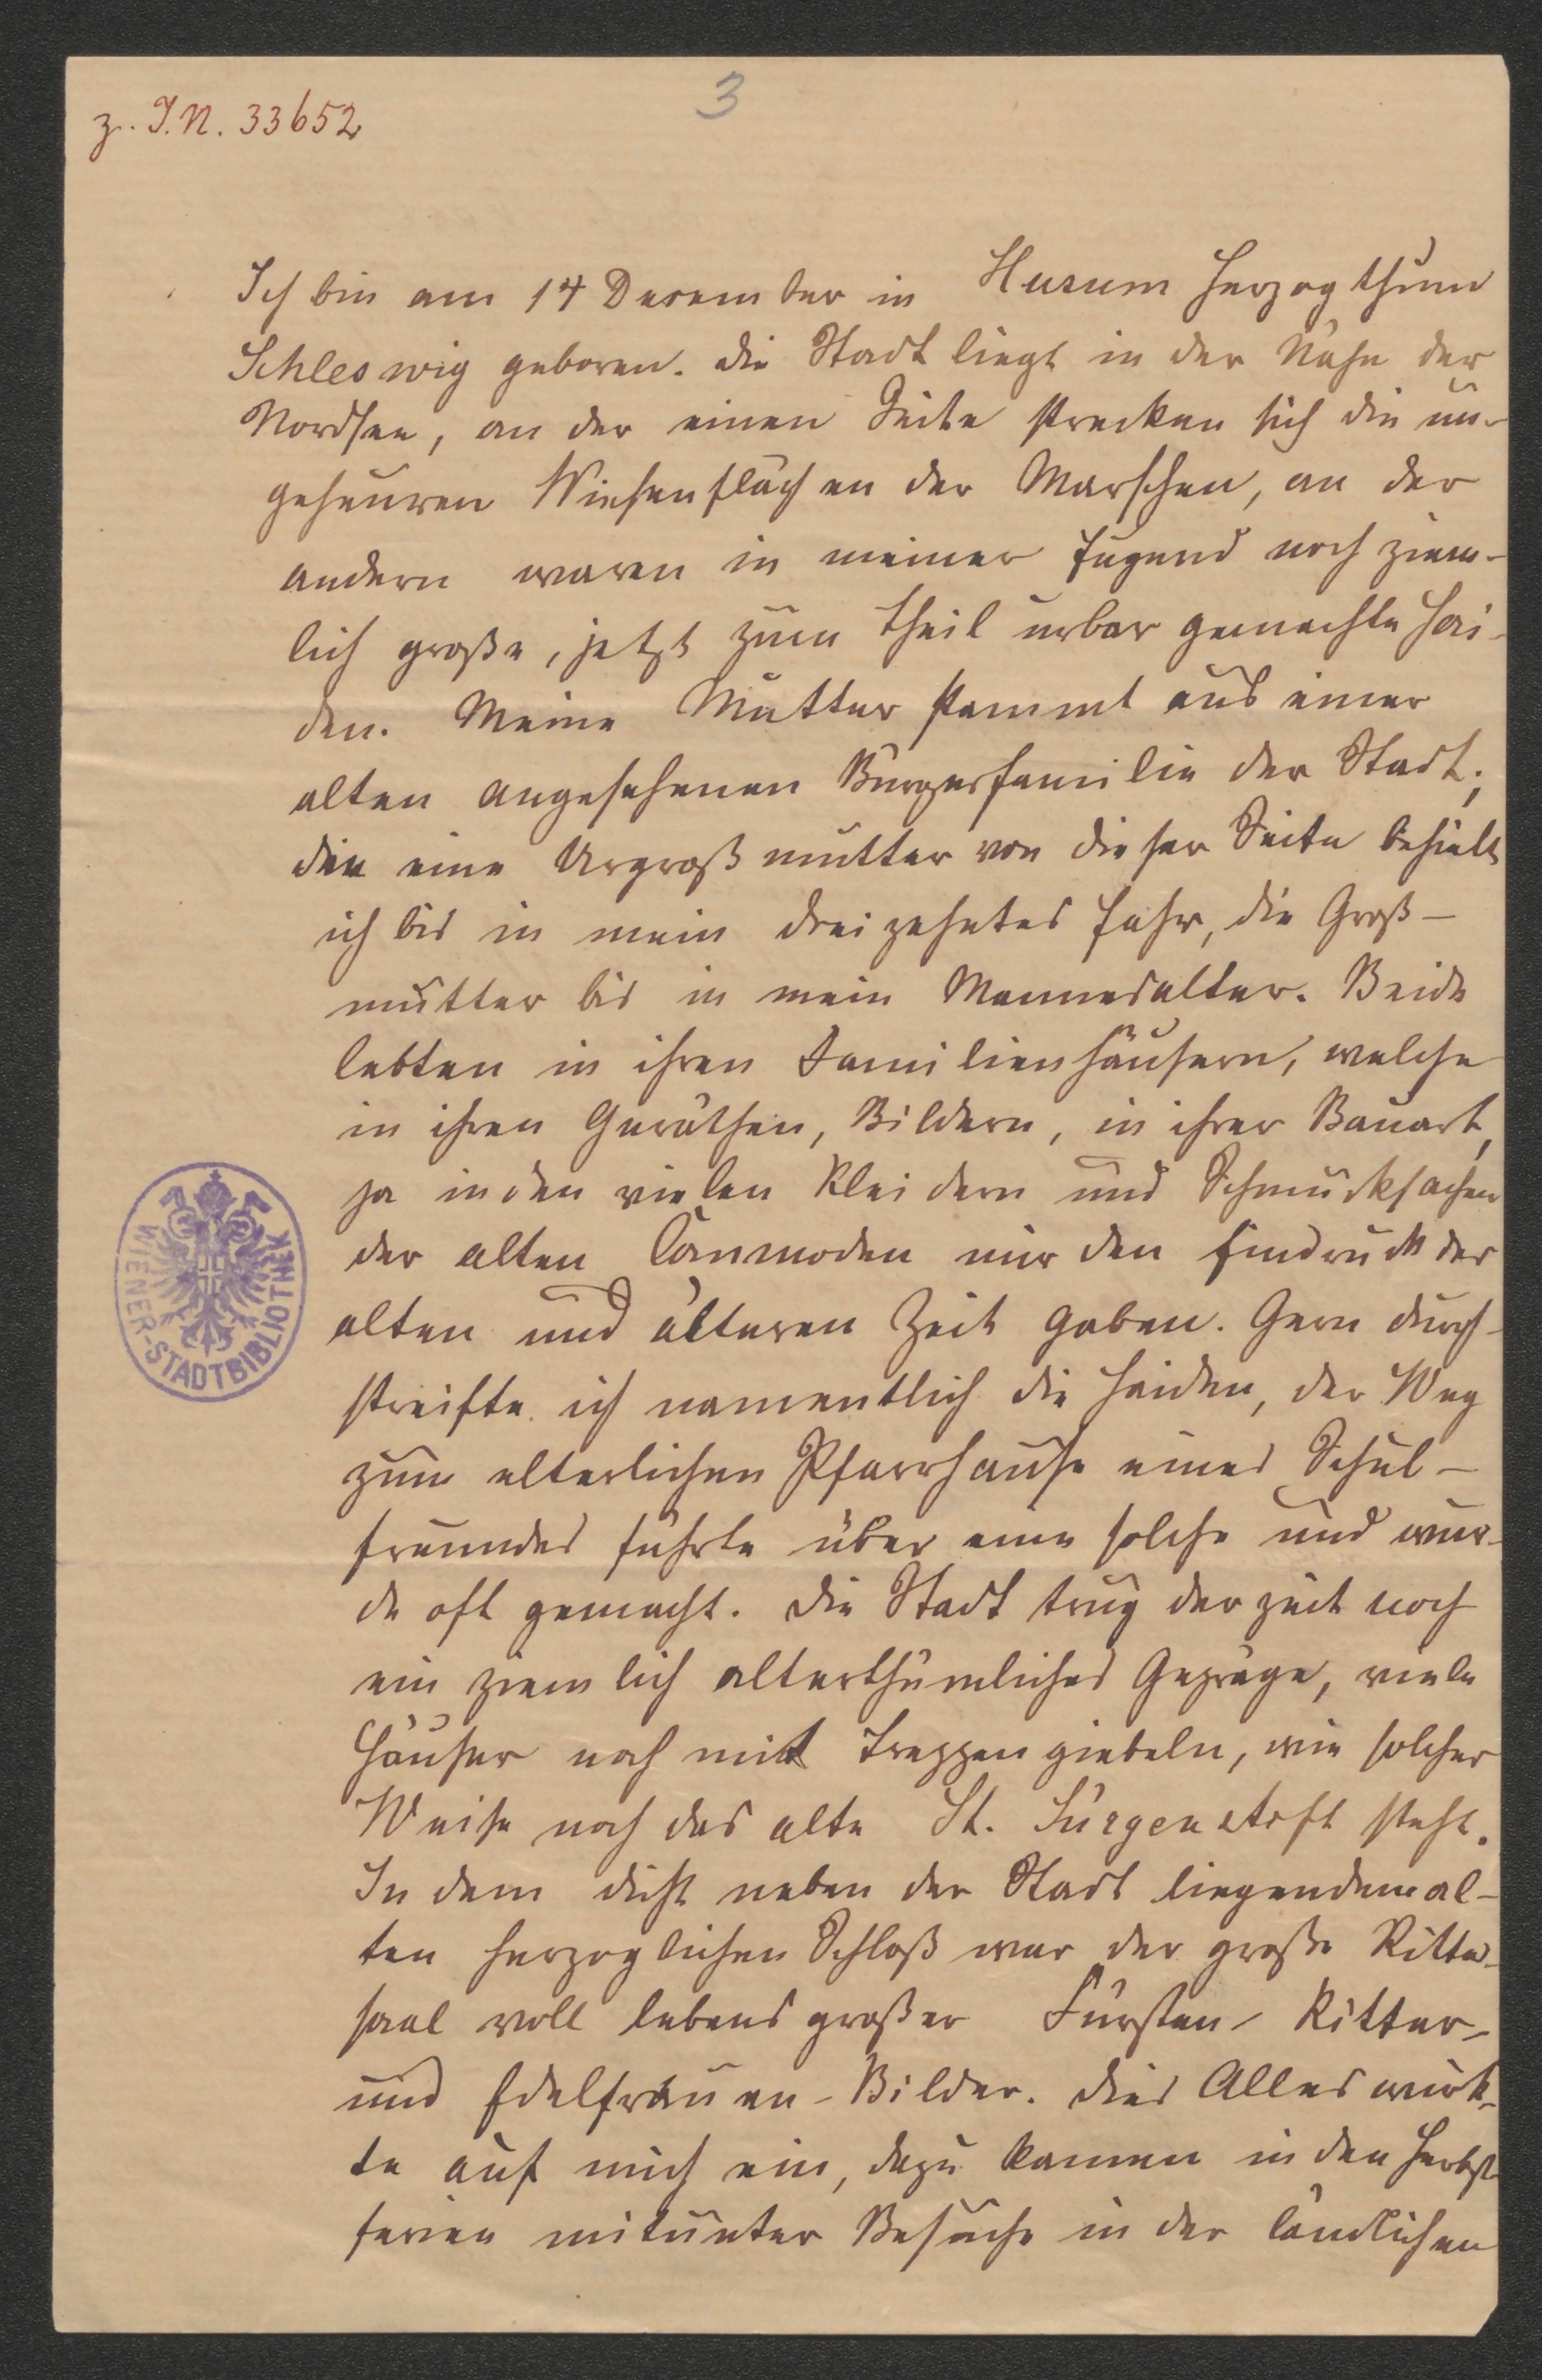 z. I.N. 33652
3
Ich bin am 14 Dezember in Husum Herzogthum
Schleswig geboren. Die Stadt liegt in der Nähe der
Nordsee, an der einen Seite strecken sich die un-
geheuren Wiesenflächen der Marschen, an der
andern waren in meiner Jugend noch ziem-
lich große, jetzt zum Theil urbar gemachte Hai-
den. Meine Mutter stammt aus einer
alten angesehenen Bürgerfamilie der Stadt;
die eine Urgroßmutter von dieser Seite behielt
ich bis in mein dreizehntes Jahr, die Groß-
mutter bis in mein Mannesalter. Beide
lebten in ihren Familienhäusern, welche
in ihren Geräthen, Bildern, in ihrer Bauart,
ja in den vielen Kleidern und Schmucksachen
der alten Commoden mir den Eindruck der
alten und älteren Zeit gaben. Gern durch-
streifte ich namentlich die Haiden, der Weg
zum elterlichen Pfarrhause eines Schul-
freundes führte über eine solche und wur-
de oft gemacht. Die Stadt trug der zeit noch
ein ziemlich alterthümliches Gepräge, viele
Häuser noch mit Treppengiebeln, wie solcher
Weise noch das alte St. Jürgenstift steht.
In dem dicht neben der Stadt liegendem al-
ten herzoglichen Schloß war der große Ritter-
saal voll lebensgroßer Fürsten- Ritter-
und Edelfrauen-Bilder. Dies Alles wirk-
te auf mich ein, dazu kamen in den Herbst-
ferien mitunter Besuche in der ländlichen
WIENER-STADTBIBLIOTHEK